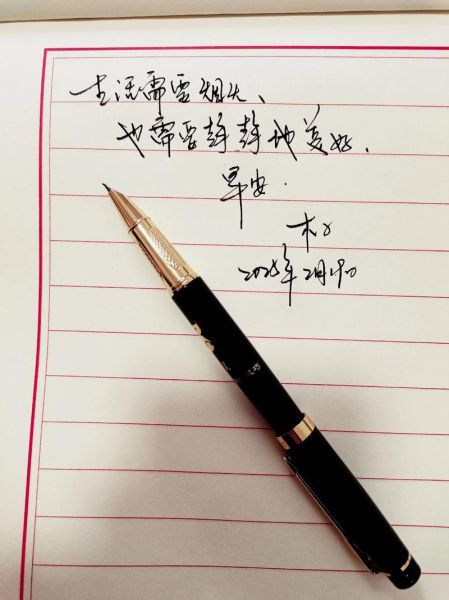 生活需要烟火、
也需要静静地美好.
早安.
木子
2025年2月19日